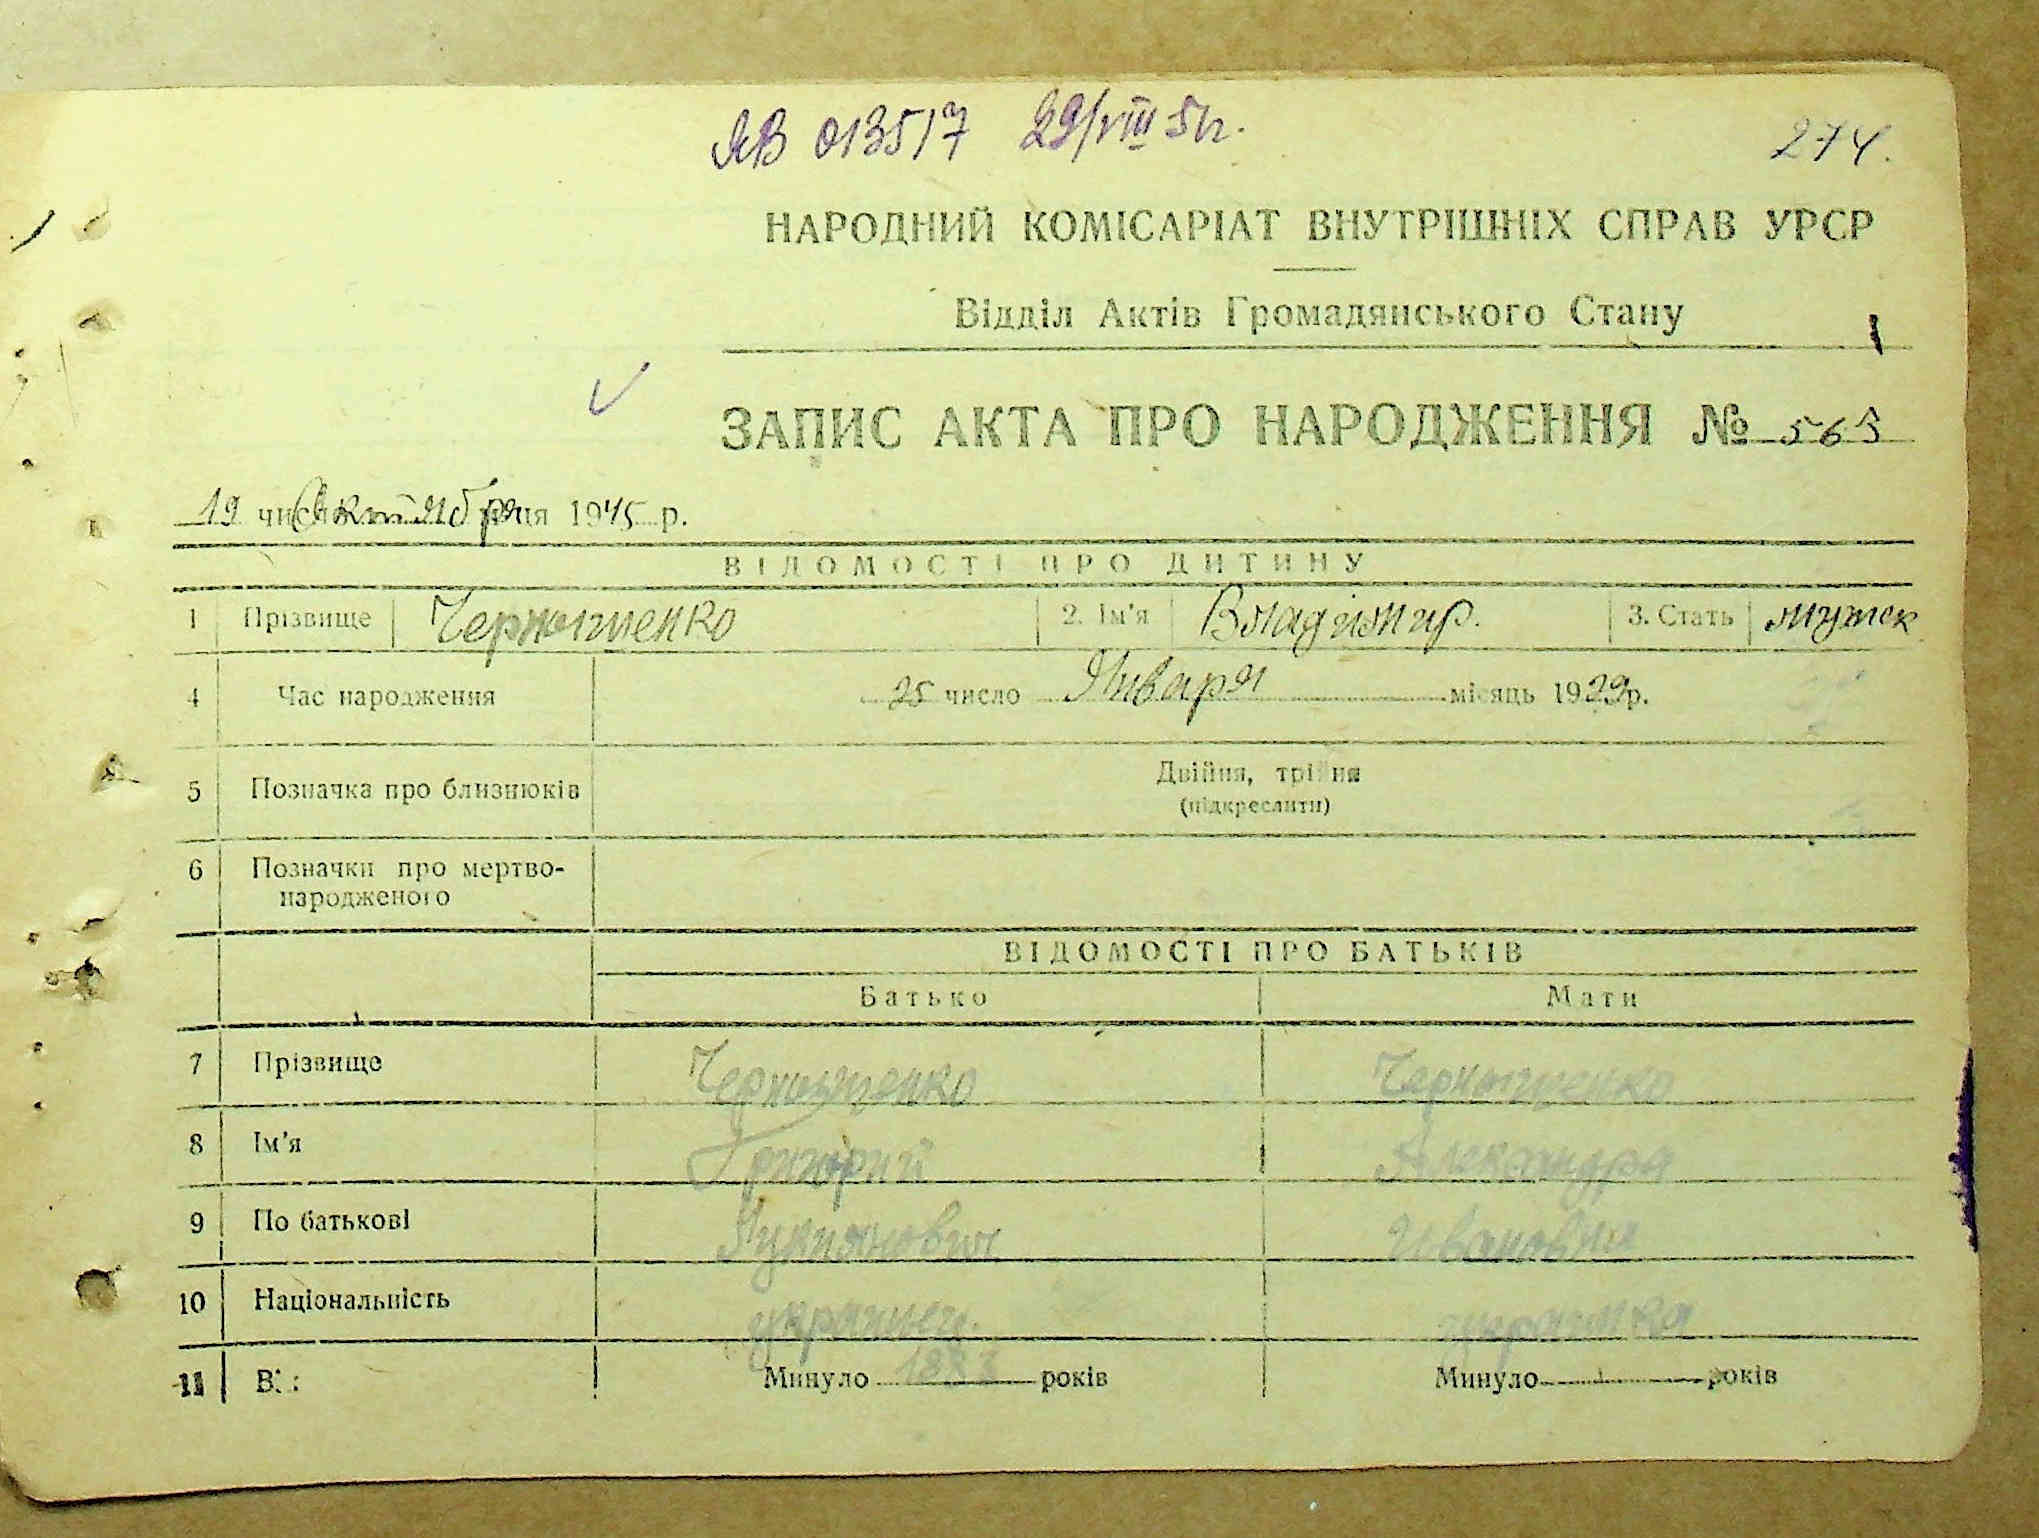 ЯВ 013517 29/VIII 51г.
274.
НАРОДНИЙ КОМІСАРІАТ ВНУТРІШНІХ СПРАВ УРСР
Відділ Актів Громадянського Стану
ЗАПИС АКТА ПРО НАРОДЖЕННЯ № 563
19 Октября 1945 р.
ВІДОМОСТІ ПРО ДИТИНУ
1 Прізвище 2. Ім'я Владимир. 3. Стать мужск
4 Час народження 25 число Января місяць 1929р.
5 Позначка про близнюків Двійня, трійня
(підкреслити)
6 Позначки про мертво-
народженого
ВІДОМОСТІ ПРО БАТЬКІВ
Батько Мати
7 Прізвище
8 Ім'я Григорий Александра
9 По батькові Лукианович Ивановна
10 Національність украинец. украинка
11 Минуло 1883 років Минуло років